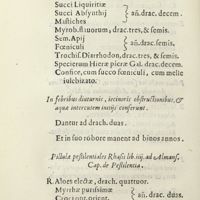 Succi Liquiritiæ
Succi Absynthij } añ. drac. decem.
Mastiches
Myrob. flauorum, drac. tres, & semis.
Sem. Apij
Fœniculi } añ. drac. & semis.
Trochisc. Diarrhodon, drac. tres, & semis.
Specierum Hieræ picræ Gal. drac. decem.
Confice, cum succo fœniculi, cum melle
iulebizato.
In febribus diuturnis, iecinoris obstructionibus, &
aquæ intercutem initijs conferunt.
Dantur ad drach. duas.
Et in suo robore manent ad binos annos.
Pillulæ pestilentiales Rhasis lib. iiij. ad Almans.
Cap. de Pestilentia.
R. Aloes electæ, drach. quattuor.
Myrrhæ purissimæ
Croci orient. } añ. drac. duas.